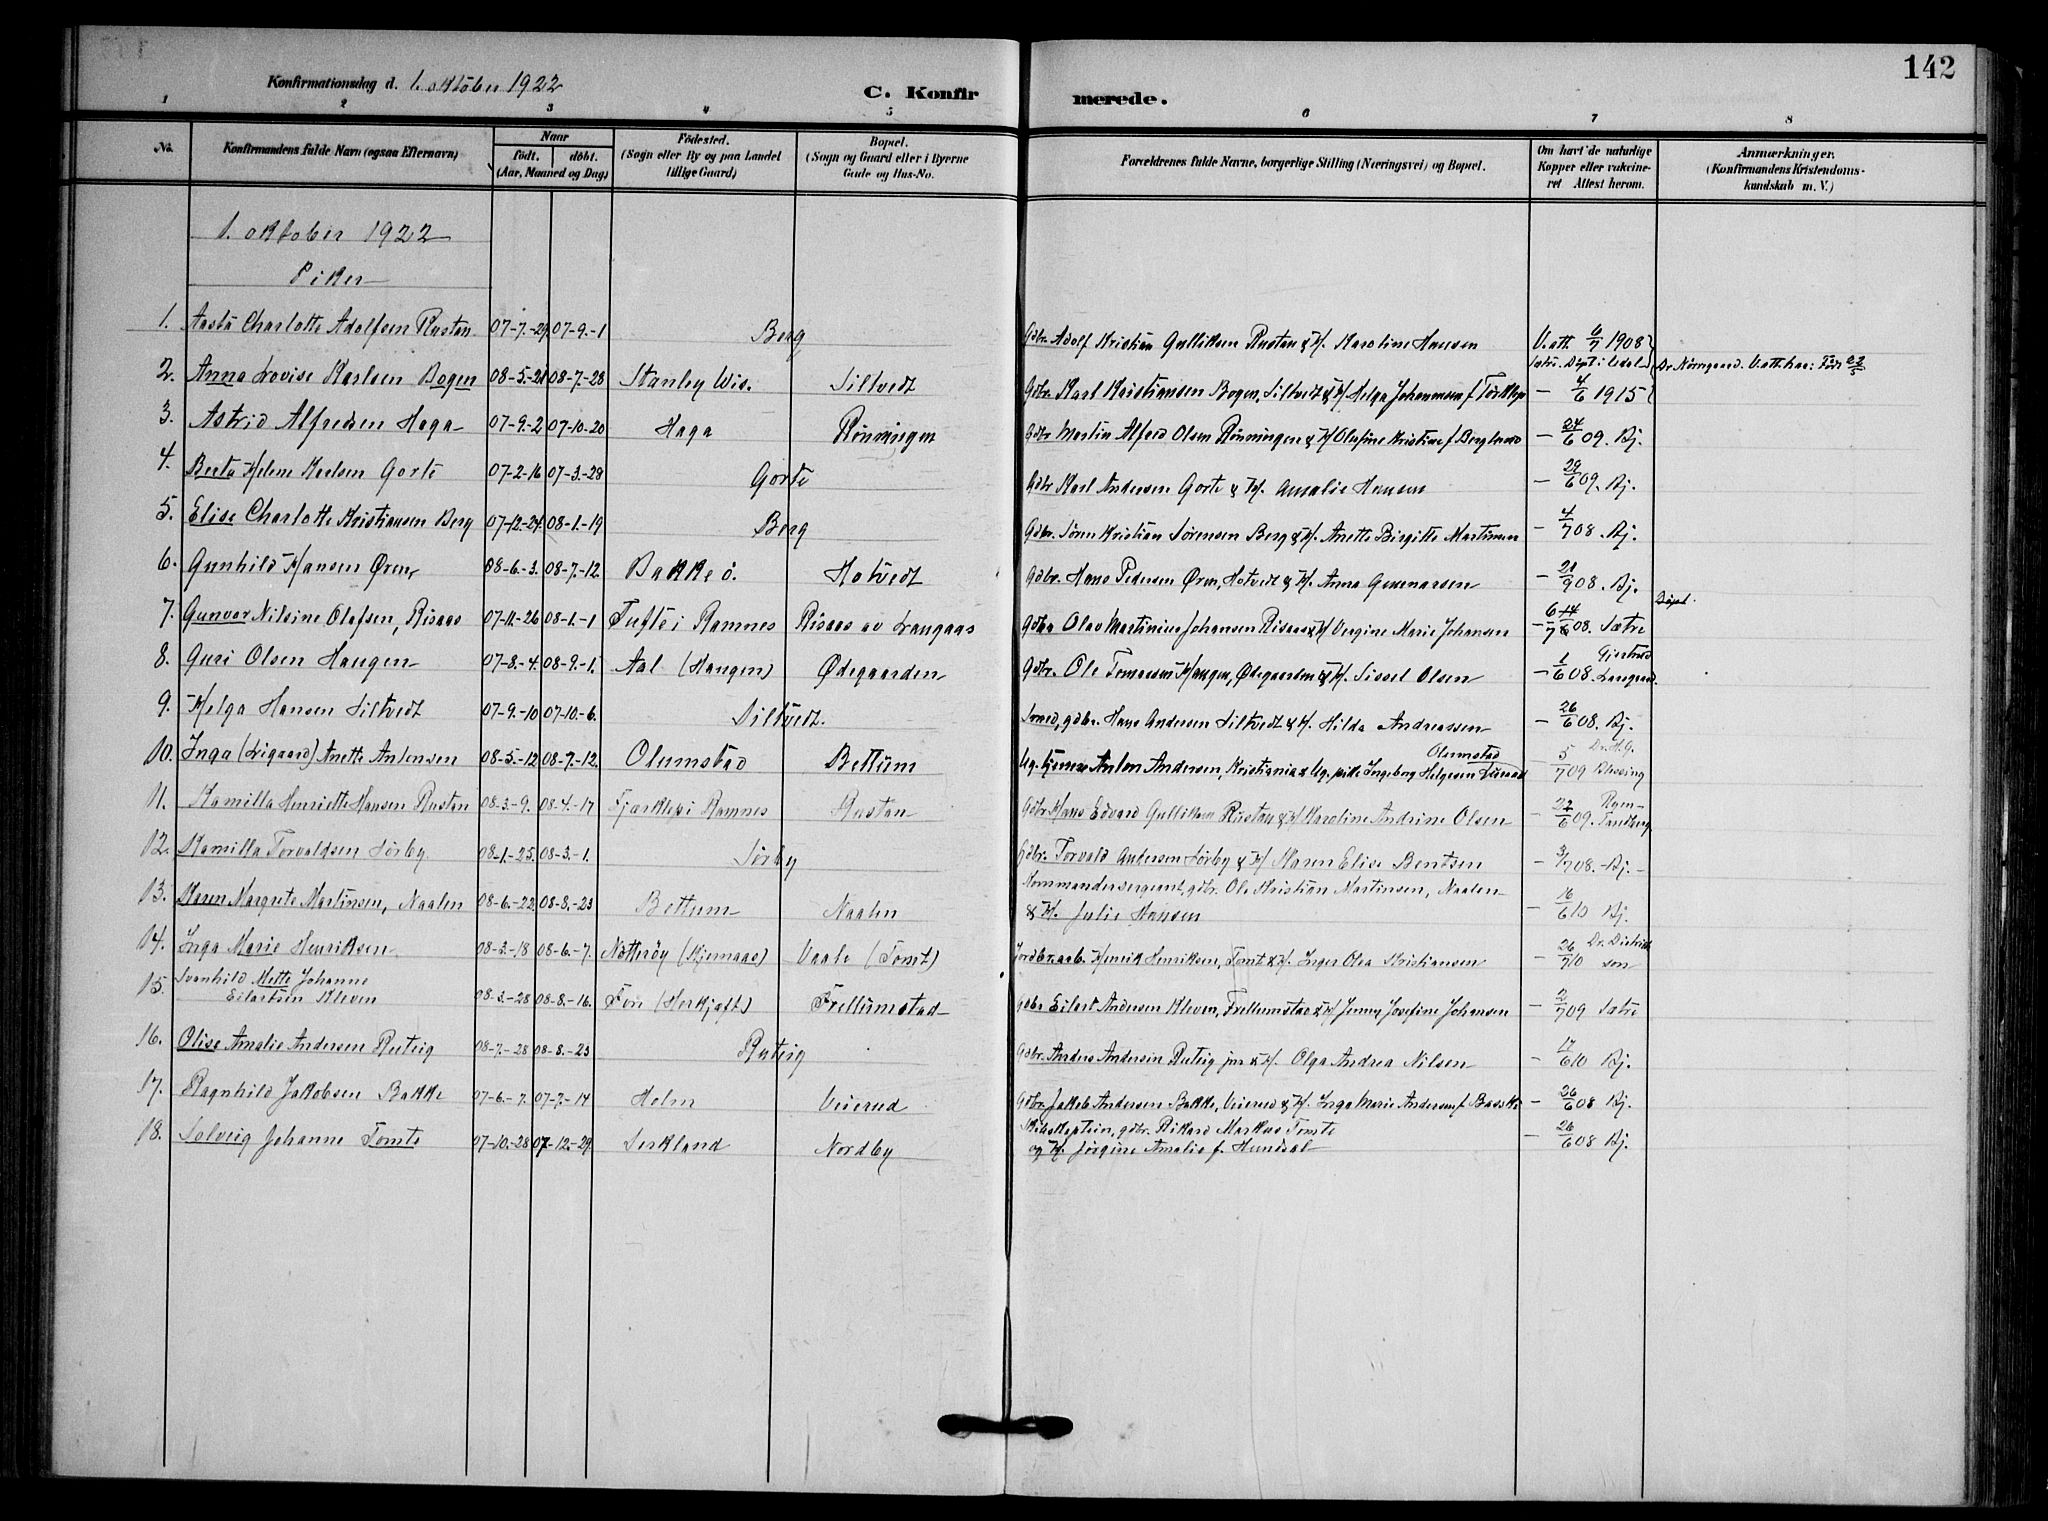 142
Konfirmationsdag d. 1. oktober 1922
C. Konfirmerede.
1 2 3 4 5 6 7 8
No.
Konfirmandens fulde Navn (ogsaa Efternavn)
Naar
födt. döbt.
(Aar, Maaned og Dag)
Födested.
(Sogn eller By og paa Landet
tillige Gaard)
Bopæl.
(Sogn og Gaard eller i Byerne
Gade og Hus-No.
Forældrenes fulde Navne, borgerlige Stilling (Næringsvei) og Bopæl.
Om havt de naturlige
Kopper eller vakcine-
ret Attest herom.
Anmærkninger.
(Konfirmandens Kristendoms-
kundskab m. V.)
1. oktober 1922
Piker
1. Aasta Charlotte Adolfsen Rustan 07-7.-29. 07-9.-1 Berg Gdbr. Adolf Kristian Gulliksen Rustan & H. Karoline Hansen V. att. 6/7 1908
2. Anna Lovise Karlsen Bogen 08-5.-21 08-7.-28 Stanley Wis. Siltvedt Gdbr. Karl Kristiansen Bogen, Siltvedt & H. Helga Johannesen f. — 4/6 1915
3. Astrid Alfredsen Haga 07-9.-2 07-10-20 Haga Rönningen Gdbr Martin Alfred Olsen Rönningen & H Olufine Kristine f Berglund — 24/6 09. Bj.
4. Berta Helene Karlsen Gorte 07-2-16 07-3.-28 Gorte Gdbr Karl Andersen Gorte & H. Amalie Hansen — 29/6 09. Bj.
5. Elise Charlotte Kristiansen Berg 07-12.-24. 08-1.-19 Berg Gdbr. Sören Kristian Sørensen Berg & H. Anette Birgitte Martinsen — 4/7 08. Bj.
6. Gunhild Hansen Øren, 08-6.-3. 08-7.-12. Bakke ö. Hotvedt Gdbr. Hans Pedersen Øren, Hotvedt & H. Anna Gunnarsen — 21/9 08. Bj.
7. Gunvor Nilsine Olafsen, Risaas 07-11.-26 08-1.-1 Tufte i Ramnes Risaas av Langaas Gdbr Olav Martinius Johansen Risaas & H Vergine Marie Johansen — 6/7 08. Sætre
8. Guri Olsen Haugen 07-8.-4. 08-9.-1. Aal (Haugen) Ødegaarden Gdbr. Ole Tomassen Haugen, Ødegaarden & H. Sissel Olsen — 1/6 08.
9. Helga Hansen Siltvedt 07-9.-10 07-10.-6. Siltvedt. gdbr. Hans Andersen Siltvedt & H. Hilda Andreassen — 26/6 08. Bj.
10. Inga (Ligaard) Anette Antonsen 08-5.-12 08-7.-12. Olumstad Bettum Ug. Anton Andersen, Kristiania & Ug. pike Ingeborg Helgesen Olumstad 5/7 09 Dr. H. G. Blessing
11. Kamilla Henriette Hansen Rustan 08-3.-9. 08-4.-17 Ramnes Rustan Gdbr Hans Edvard Gulliksen Rustan & H Karoline Andrine Olsen — 22/6 09. Tandberg
12. Kamilla Torvaldsen Sörby 08-1.-25. 08-3.-1. Sörby Gdbr. Torvald Andersen Sörby & H Karen Elise Bentsen — 3/7 08. Bj.
13. Karen Margrete Martinsen, Naalen 08-6.-22. 08-8.-23 Bettum Naalen Kommandersergeant, gdbr. Ole Kristian Martinsen, Naalen
& H. Julie Hansen — 16/6 10 Bj.
14. Inga Marie Henriksen 08-3.-18 08-6.-7. Nötteröy (Kjernaas) Vaale (Tomt) Jordbr. arb. Henrik Henriksen, Tomt & H. Inger Olea Kristiansen — 26/7 10 Dr. Didrikson
15. Svanhild Mette Johanne
Eilertsen Kleven 08-3.-28 08-8.-16. Fon (Herkjøst) Frellumstad Gdbr Eilert Andersen Kleven, Frellumstad & H Jenny Josefine Johansen — 2/7 09 Sætre
16. Olise Amalie Andersen Ruteig 08-7.-28 08-8.-23 Ruteig Gdbr. Anders Andersen Ruteig jnr & H. Olga Andrea Nilsen — 17/6 10 Bj.
17. Ragnhild Jakobsen Bakke 07-6.-7. 07-7.-14 Holm Veierud Gdbr. Jakob Andersen Bakke, Veierud & H. Inga Marie Andersen f. — 26/6 08 Bj.
18. Solveig Johanne Tomte 07-10.-28 07-12.-29. Serkland Nordby Skibskaptein, gdbr. Rikard Markus Tomte
og H. Jörgine Amalie f. Hundsal — 26/6 08 Bj.